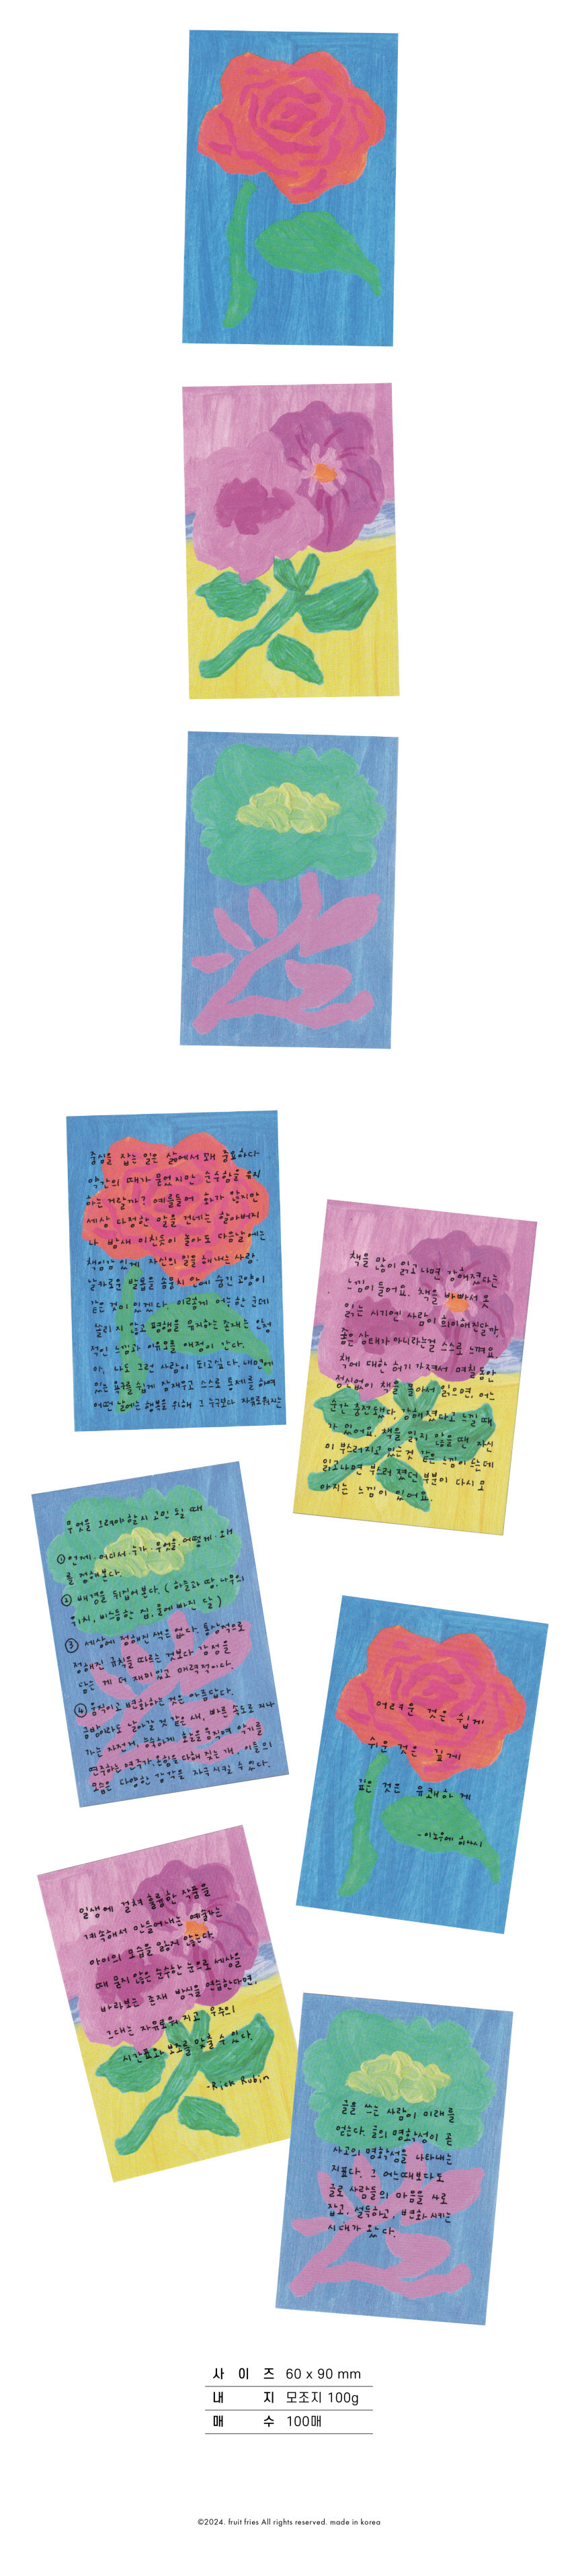 중심을 잡는 일은 삶에서 꽤 중요하다.
약간의 때가 묻었지만 순수함을 유지
하는 거랄까? 예를들어 화가 많지만
세상 다정한 말을 건네는 할아버지
나 밤새 미친듯이 놀아도 다음날에는
책임감 있게 자신의 일을 해내는 사람
날카로운 발톱을 솜뭉치 안에 숨긴 고양이
같은 것이 있겠다. 이렇게 어느 한 군데
쏠리지 않고 평행을 유지하는 존재는 인형
적인 느낌과 아름다움을 애정이 간다.
아, 나도 그런 사람이 되고싶다. 내면에
있는 욕구를 쉽게 잠재우고 스스로 통제를 하며
어떤 날에는 행복을 위해 그 누구보다 자유로워지는
책을 많이 읽고나면 강해졌다는
느낌이 들어요. 책을 바빠서 못
읽는 시기엔 사람이 희미해진달까,
좋은 상태가 아니라는걸 스스로 느껴요.
책에 대한 허기 가져서 며칠동안
정신없이 책을 몰아서 읽으면, 어느
순간 충전됐다, 강해졌다고 느낄 때
가 있어요. 책을 읽지 않을 땐 자신
이 부스러지고 있는것 같은 느낌이 드는데
읽고나면 부스러졌던 부분이 다시 모
아지는 느낌이 있어요.
무엇을 그려야할지 고민 될 때
① 언제, 어디서, 누가, 무엇을, 어떻게, 왜
를 정해본다.
② 배경을 뒤집어 본다. (하늘과 땅, 나무의
위치, 비스듬한 집, 물에 빠진 달)
③ 세상에 정해진 색은 없다. 통상적으로
정해진 규칙을 따르는 것보다 감정을
담는 게 더 재미있고 매력적이다.
④ 움직이고 변화하는 것은 아름답다.
금방이라도 날아갈 것 같은 새, 빠른 속도로 지나
가는 자전거,
연주하는 연주가
모습은 다양한 감각을 자극시킬 수 있다.
어려운 것은 쉽게
쉬운 것은 깊게
깊은 것은 유쾌하게
-이노우에 히사시
일생에 걸쳐 훌륭한 작품을
계속해서 만들어내는 예술가는
아이의 모습을 잃지 않는다.
때 묻지 않은 순수한 눈으로 세상을
바라보는 존재 방식을 연습한다면,
그대는 자유로워지고 우주의
시간표와 보조를 맞출 수 있다.
-Rick Rubin
글을 쓰는 사람이 미래를
얻는다. 글의 명확성이 곧
사고의 명확성을 나타내는
지표다. 그 어느때보다도
글로 사람들의 마음을 사로
잡고, 설득하고, 변화시키는
시대가 왔다.
사 이 즈 60 x 90 mm
내 지 모조지 100g
매 수 100매
©2024. fruit fries All rights reserved. made in korea